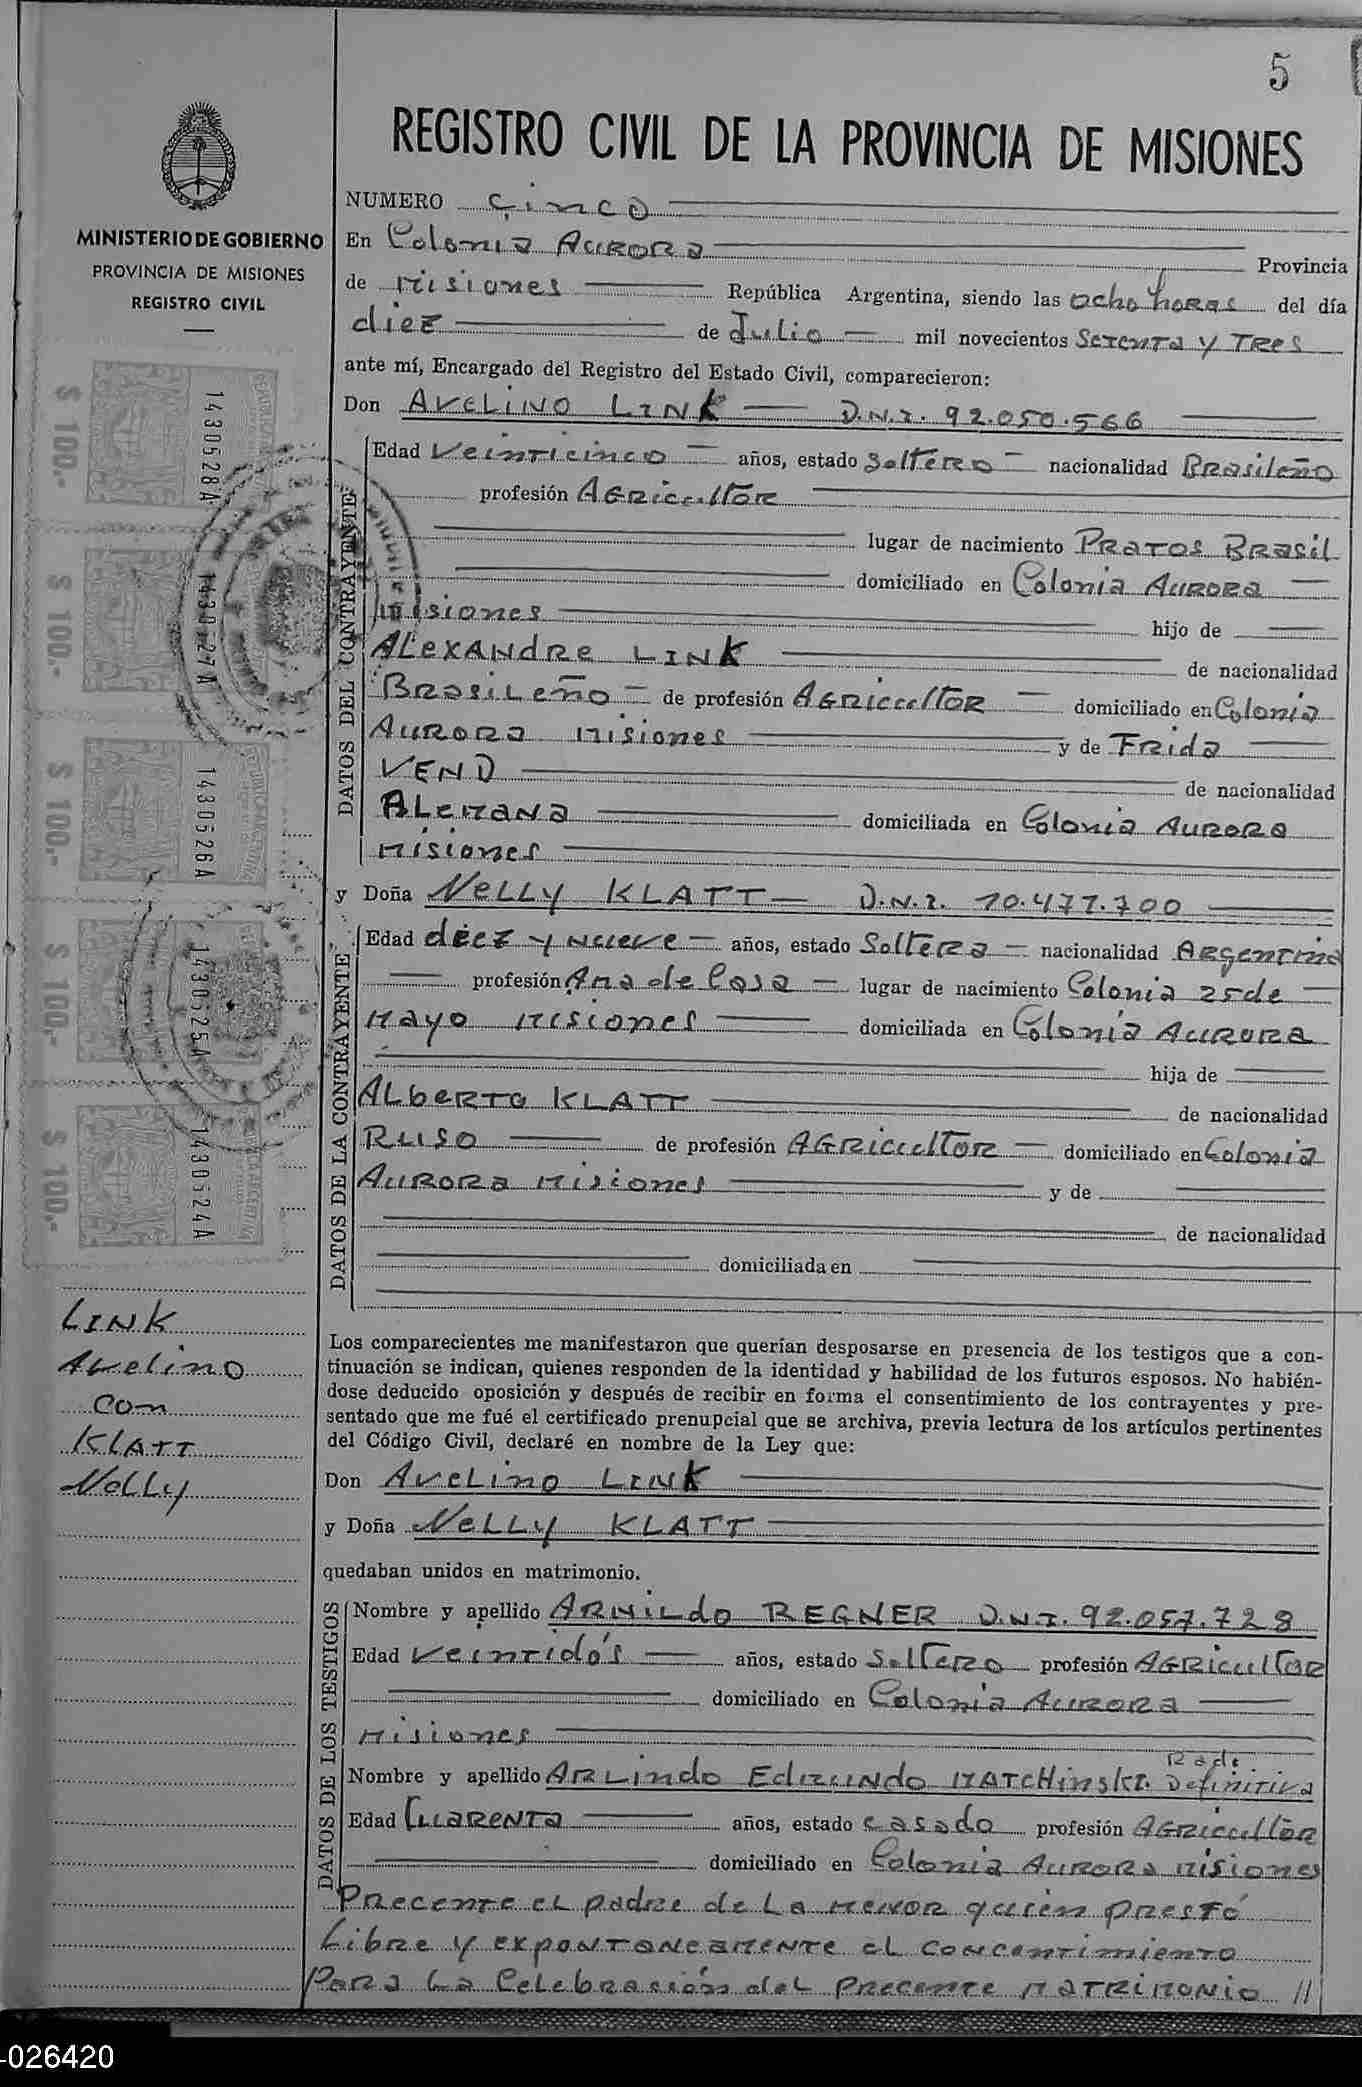 5
REGISTRO CIVIL DE LA PROVINCIA DE MISIONES
MINISTERIO DE GOBIERNO
PROVINCIA DE MISIONES
REGISTRO CIVIL
NUMERO Cinco
En Colonia Aurora Provincia
de Misiones República Argentina, siendo las ocho horas del día
diez de Julio mil novecientos Setenta y Tres
ante mí, Encargado del Registro del Estado Civil, comparecieron:
Don AVELINO LINK D.N.I. 92.050.566
DATOS DEL CONTRAYENTE
Edad Veinticinco años, estado Soltero nacionalidad Brasileño
profesión Agricultor
lugar de nacimiento Pratos Brasil
domiciliado en Colonia Aurora
Misiones hijo de
Alexandre LINK de nacionalidad
Brasileño de profesión Agricultor domiciliado en Colonia
Aurora Misiones y de Frida
VEND de nacionalidad
Alemana domiciliada en Colonia Aurora
Misiones
y Doña Nelly KLATT D.N.I. 10.477.700
DATOS DE LA CONTRAYENTE
Edad diez y nueve años, estado Soltera nacionalidad Argentina
profesión Ama de Casa lugar de nacimiento Colonia 25 de
Mayo Misiones domiciliada en Colonia Aurora
hija de
Alberto KLATT de nacionalidad
RUSO de profesión Agricultor domiciliado en Colonia
Aurora Misiones y de
de nacionalidad
domiciliada en
Los comparecientes me manifestaron que querían desposarse en presencia de los testigos que a con-
tinuación se indican, quienes responden de la identidad y habilidad de los futuros esposos. No habién-
dose deducido oposición y después de recibir en forma el consentimiento de los contrayentes y pre-
sentado que me fué el certificado prenupcial que se archiva, previa lectura de los artículos pertinentes
del Código Civil, declaré en nombre de la Ley que:
Don Avelino LINK
y Doña Nelly KLATT
quedaban unidos en matrimonio.
DATOS DE LOS TESTIGOS
Nombre y apellido Arnildo REGNER D.N.I. 92.057.728
Edad Veintidós años, estado Soltero profesión Agricultor
domiciliado en Colonia Aurora
Misiones
Nombre y apellido Arlindo Edmundo Matchinski Definitiva
Edad Cuarenta años, estado casado profesión Agricultor
domiciliado en Colonia Aurora Misiones
Precente el padre de la menor quien prestó
Libre y expontaneamente el concentimiento
Para la Celebración del precente matrimonio //
$ 100.-
1430528A
$ 100.-
1430527A
$ 100.-
1430526A
$ 100.-
1430525A
$ 100.-
1430524A
LINK
Avelino
con
KLATT
Nelly
-026420